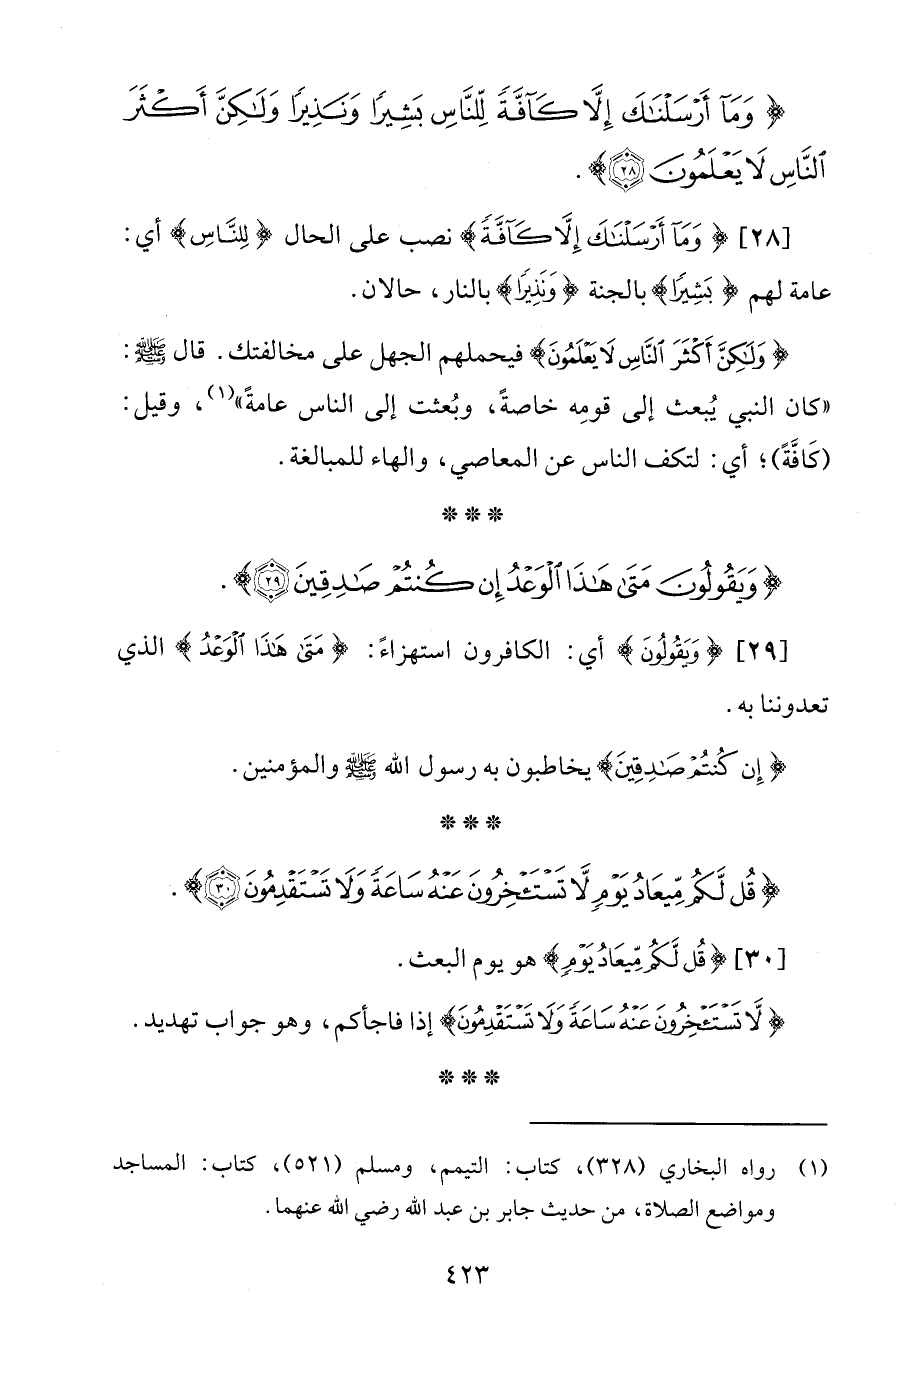 ﴿ وَمَآ أَرْسَلْنَٰكَ إِلَّا كَآفَّةً لِّلنَّاسِ بَشِيرًا وَنَذِيرًا وَلَٰكِنَّ أَكْثَرَ
ٱلنَّاسِ لَا يَعْلَمُونَ ﴿٢٨﴾ ﴾ .
[٢٨] ﴿ وَمَآ أَرْسَلْنَٰكَ إِلَّا كَآفَّةً ﴾ نصب على الحال ﴿ لِلنَّاسِ ﴾ أي:
عامة لهم ﴿ بَشِيرًا ﴾ بالجنة ﴿ وَنَذِيرًا ﴾ بالنار، حالان.
﴿ وَلَٰكِنَّ أَكْثَرَ ٱلنَّاسِ لَا يَعْلَمُونَ ﴾ فيحملهم الجهل على مخالفتك. قال ﷺ:
«كان النبي يُبعث إلى قومِه خاصةً، وبُعثت إلى الناس عامةً»(١)، وقيل:
(كَافَّةً)؛ أي: لتكف الناس عن المعاصي، والهاء للمبالغة.
* * *
﴿ وَيَقُولُونَ مَتَىٰ هَٰذَا ٱلْوَعْدُ إِن كُنتُمْ صَٰدِقِينَ ﴿٢٩﴾ ﴾ .
[٢٩] ﴿ وَيَقُولُونَ ﴾ أي: الكافرون استهزاءً: ﴿ مَتَىٰ هَٰذَا ٱلْوَعْدُ ﴾ الذي
تعدوننا به.
﴿ إِن كُنتُمْ صَٰدِقِينَ ﴾ يخاطبون به رسول الله ﷺ والمؤمنين.
* * *
﴿ قُل لَّكُم مِّيعَادُ يَوْمٍ لَّا تَسْتَـْٔخِرُونَ عَنْهُ سَاعَةً وَلَا تَسْتَقْدِمُونَ ﴿٣٠﴾ ﴾ .
[٣٠] ﴿ قُل لَّكُم مِّيعَادُ يَوْمٍ ﴾ هو يوم البعث.
﴿ لَّا تَسْتَـْٔخِرُونَ عَنْهُ سَاعَةً وَلَا تَسْتَقْدِمُونَ ﴾ إذا فاجأكم، وهو جواب تهديد.
* * *
(١) رواه البخاري (٣٢٨)، كتاب: التيمم، ومسلم (٥٢١)، كتاب: المساجد
ومواضع الصلاة، من حديث جابر بن عبد الله رضي الله عنهما.
٤٢٣